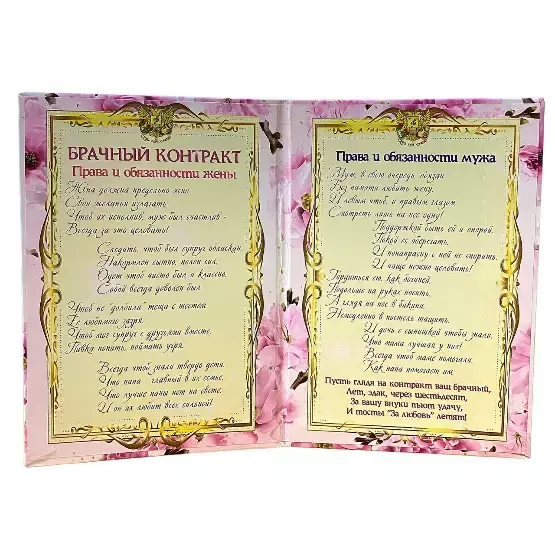 БРАЧНЫЙ КОНТРАКТ
Права и обязанности жены
Жена должна предельно ясно
Свои желанья излагать,
Чтоб их исполнил, муж был счастлив -
Всегда за это целовать!
Следить, чтоб был супруг обласкан,
Накормлен сытно, полон сил,
Одет чтоб чисто был и классно,
Собой всегда доволен был
Чтоб не "долбили" теща с тестем
Её любимого зазря,
Чтоб мог супруг с друзьями вместе,
Пивка попить, поймать угря.
Всегда чтоб знали твердо дети,
Что папа - главный в их семье,
Что лучше папы нет на свете,
И он их любит всех сильней!
Права и обязанности мужа
Муж в свою очередь обязан
Без памяти любить жену,
И левым чтоб, и правым глазом
Смотреть лишь на нее одну!
Поддержкой быть ей и опорой,
Покой ее оберегать,
И понапрасну с ней не спорить,
И чаще нежно целовать!
Гордиться ею, как богиней,
Подольше на руках носить,
А глядя на нее в бикини,
Немедленно в постель тащить.
И дочь с сынишкой чтобы знали,
Что мама лучшая у них!
Всегда чтоб маме помогали,
Как папа помогает им.
Пусть глядя на контракт ваш брачный,
Лет, эдак, через шестьдесят,
За вашу внуки пьют удачу,
И тосты "За любовь" летят!